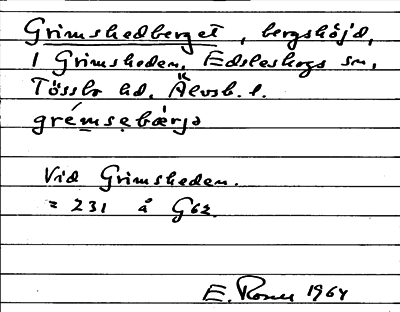 Grimshedberget, bergshöjd,
i Grimsheden, Edsleskogs sn,
Tössbo hd, Älvsb. l.
grémsebærja
Vid Grimsheden.
= 231 å G62.
E. 1964